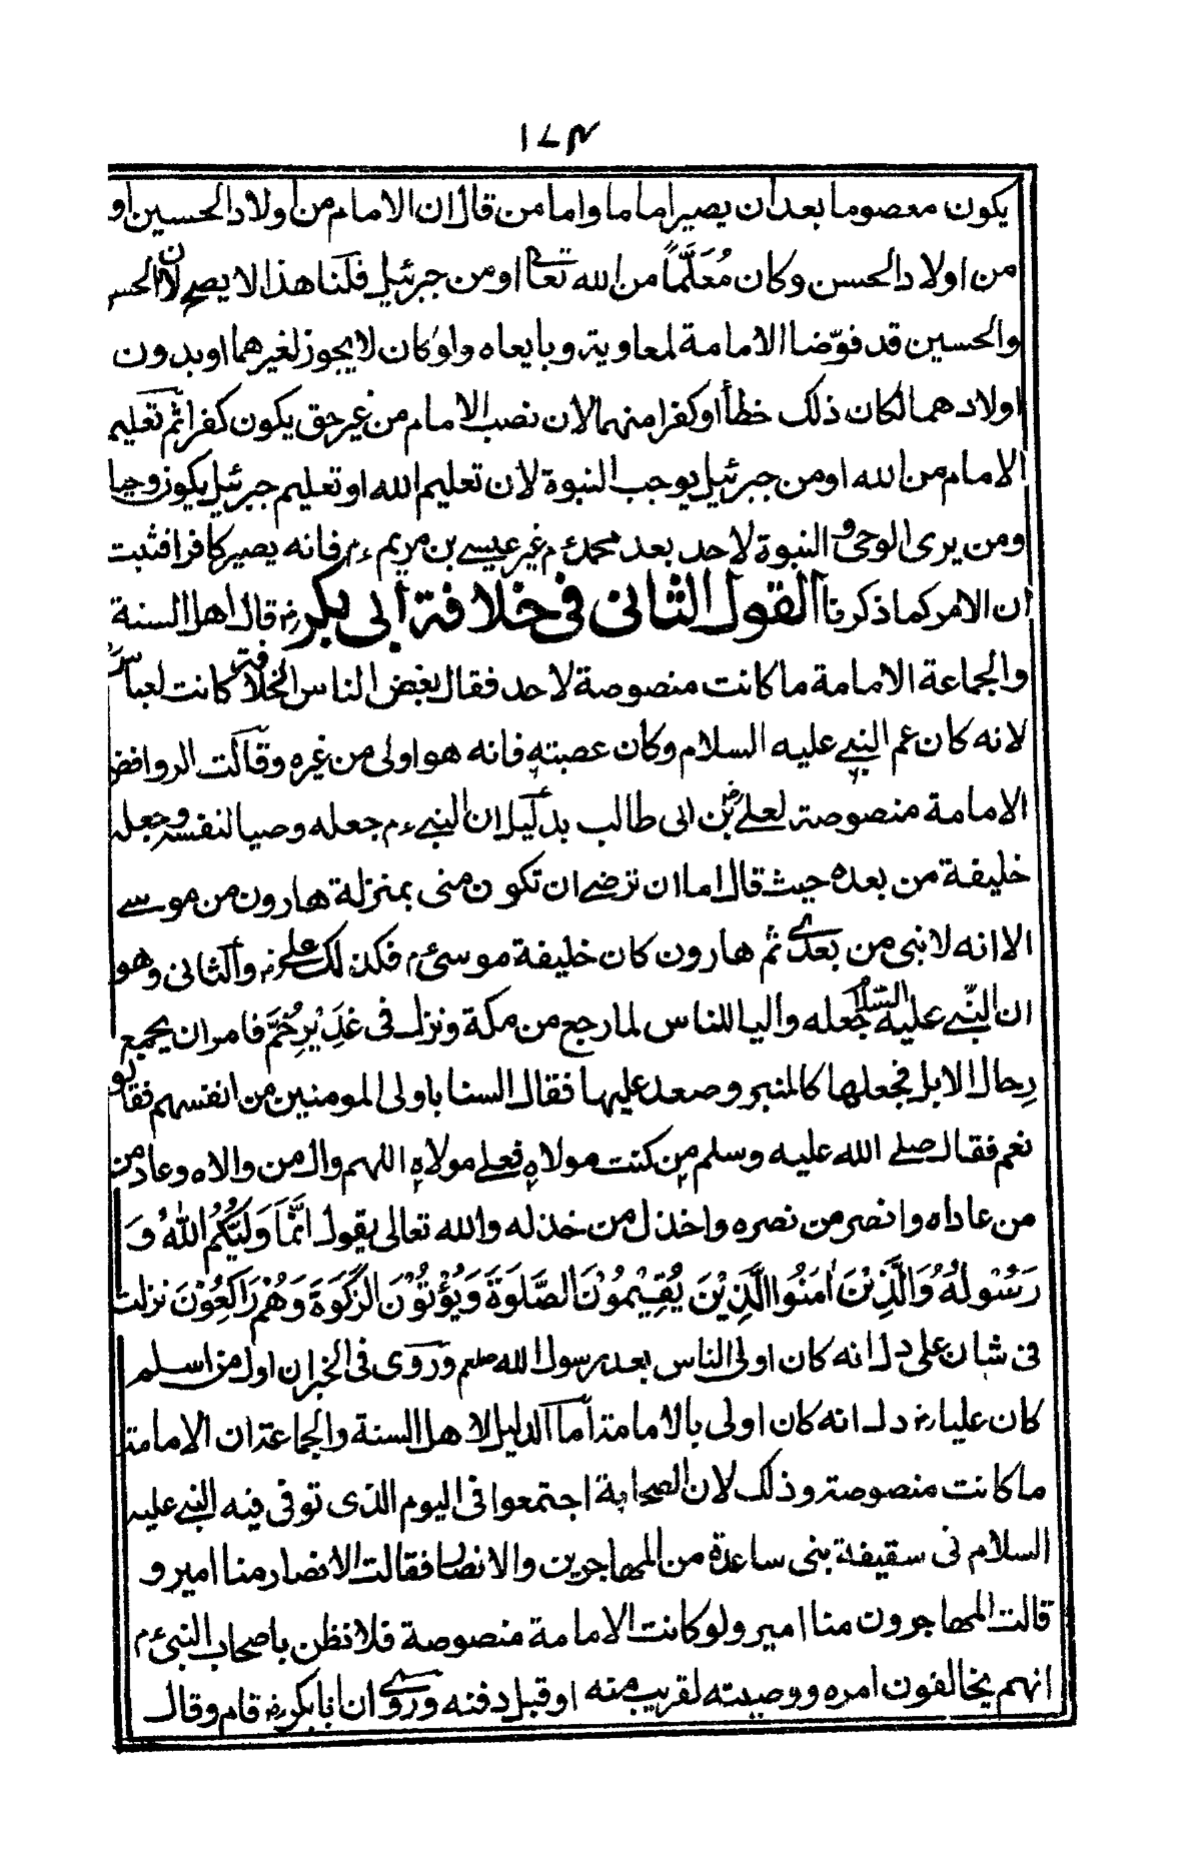 ١٧٤
يكون معصوما بعد ان يصير اماما واما من قال ان الامام من اولاد الحسين او
من اولاد الحسن وكان مُعَلَّماً من الله تعالى او من جبرئيل قلنا هذا لا يصح لان الحسن
والحسين قد فوّضا الامامة لمعاوية وبايعاه ولو كان لا يجوز لغيرهما او بدون
اولادهما لكان ذلك خطأ او كفرا منهما لان نصب الامام من غير حق يكون كفرا ثم تعليم
الامام من الله او من جبرئيل يوجب النبوة لان تعليم الله او تعليم جبرئيل يكون وحيا
ومن يرى الوحى و النبوة لاحد بعد محمد ءم غير عيسے بن مريم ءم فانه يصير كافرا فثبت
ان الامر كما ذكرنا القول الثانى فى خلافة ابى بكر رض قال اهل السنة
والجماعة الامامة ما كانت منصوصة لاحد فقال بعض الناس الخلافة كانت لعباس
لانه كان عم النبے عليه السلام وكان عصبته فانه هو اولى من غيره وقالت الروافض
الامامة منصوصة لعلے رض بن ابى طالب بدليل ان النبے ءم جعله وصيا لنفسه وجعله
خليفة من بعده حيث قال اما ان ترضے ان تكون منى بمنزلة هارون من موسے
الا انه لا نبى من بعدى ثم هارون كان خليفة موسى ءم فكذلك على رض والثانى وهو
ان النّبے عليه السلام جعله واليا للناس لما رجع من مكة ونزل فى غَدِيْرِ خُمَّ فامر ان يجمع
رِحال الابل فجعلها كالمنبر وصعد عليها فقال السنا باولى المومنين من انفسهم فقالو
نعم فقال صلے الله عليه وسلم من كنت مولاه فعلے مولاه اللهم وال من والاه وعاد من
من عاداه وانصر من نصره واخذل من خذله والله تعالى يقول اِنَّمَا وَلِيُّكُمُ اللهُ وَ
رَسُوْلُهُ وَالَّذِيْنَ اٰمَنُوا الَّذِيْنَ يُقِيْمُوْنَ الصَّلٰوةَ وَيُؤْتُوْنَ الزَّكٰوةَ وَهُمْ رَاكِعُوْنَ نزلت
فى شان على دل انه كان اولى الناس بعد رسول الله صلعم وروى فى الخبر ان اول من اسلم
كان عليا رض دل انه كان اولى بالامامة اما الدليل لاهل السنة والجماعة ان الامامة
ما كانت منصوصة وذلك لان الصحابة اجتمعوا فى اليوم الذى توفى فيه النبے عليه
السلام فى سقيفة بنى ساعدة من المهاجرين والانصار فقالت الانصار منا امير و
قالت المهاجرون منا امير ولو كانت الامامة منصوصة فلا نظن باصحاب النبى ءم
انهم يخالفون امره ووصيته لقريب منه او قبل دفنه وروى ان ابا بكر رض قام وقال